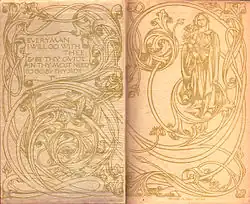 EVERYMAN
I WILL GO WITH
THEE
& BE THY GVIDE
IN THY MOST NEED
TO GO BY THY SIDE